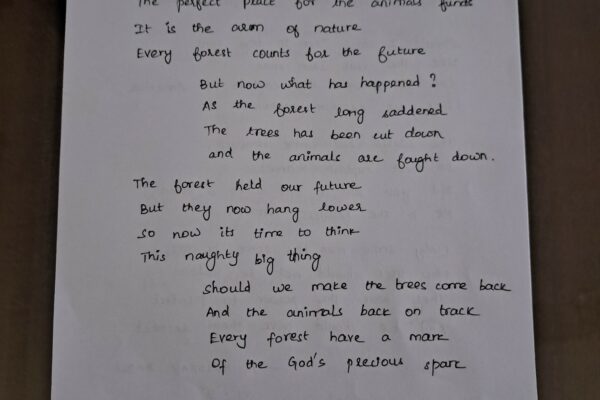 The perfect place for the animals funds
It is the arm of nature
Every forest counts for the future
But now what has happened ?
As the forest long saddened
The trees has been cut down
and the animals are faught down.
The forest held our future
But they now hang lower
so now its time to think
This naughty big thing
should we make the trees come back
And the animals back on track
Every forest have a mark
Of the God's precious spark